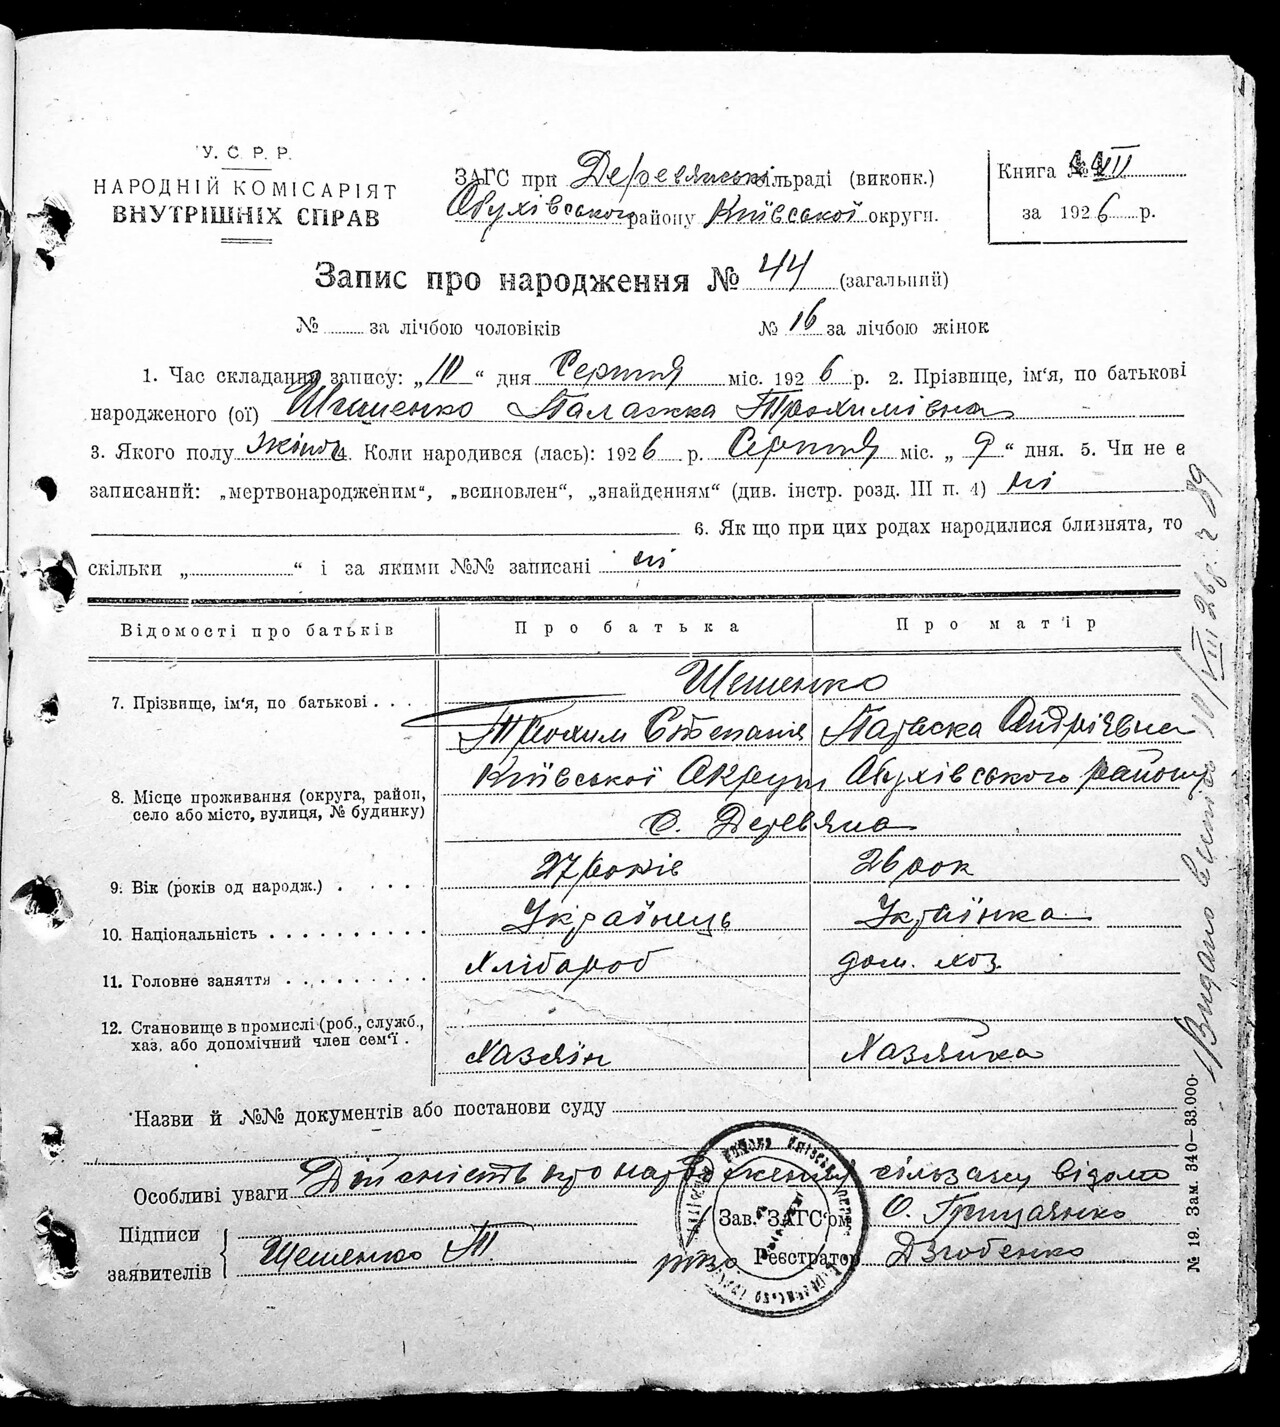 У. С. Р. Р.
НАРОДНІЙ КОМІСАРІЯТ
ВНУТРІШНІХ СПРАВ
ЗАГС при Деревянські сільраді (виконк.)
Обухівського району Київської округи.
Книга № VII
за 1926 р.
Запис про народження № 44 (загальний)
№ за лічбою чоловіків № 16 за лічбою жінок
1. Час складання запису: „10“ дня Серпня міс. 1926 р. 2. Прізвище, ім'я, по батькові
народженого (ої) Палажка Трохимівна
3. Якого полу жіноч 4. Коли народився (лась): 1926 р. Серпня міс. „9“ дня. 5. Чи не є
записаний: „мертвонародженим“, „всиновлен“, „знайденням“ (див. інстр. розд. III п. 4) ні
6. Як що при цих родах народилися близнята, то
скільки „ “ і за якими №№ записані ні
Відомості про батьків Про батька Про матір
7. Прізвище, ім'я, по батькові . . . Шешенко
Трохим Степанів Андріївна
8. Місце проживання (округа, район, село або місто, вулиця, № будинку) Київської Округи Обухівського району
с. Деревяна
9. Вік (років од народж.) . . . . . 27 років 26 рок
10. Національність . . . . . . . . . . Українець Українка
11. Головне заняття . . . . . . . . Хлібороб дом. хоз.
12. Становище в промислі (роб., служб.,
хаз. або допомічний член сем'ї . Хазяїн Хазяйка
Назви й №№ документів або постанови суду
Особливі уваги Дійсність про народження сільраду відома
Підписи
заявителів Шешенко Т.
Зав. ЗАГС'ом О. Грицаянко
Реєстратор Дзюбенко
Видано 10/VIII 26 р. 89
№ 19. Зам. 340—33.000